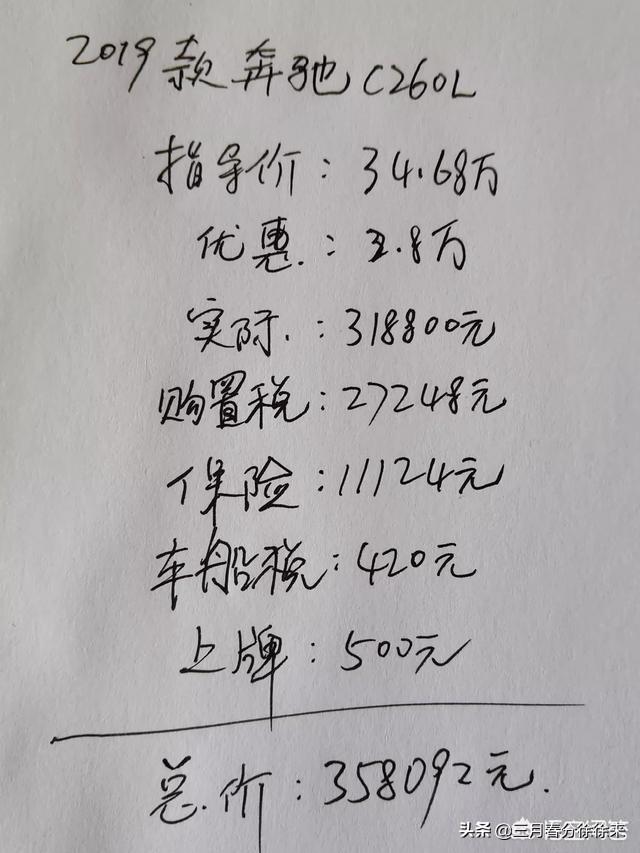 2019款奔驰C260L
指导价：34.68万
优惠：2.8万
实际：318800元
购置税：27248元
保险：11124元
车船税：420元
上牌：500元
总价：358092元.
头条 @三月春分徐徐来